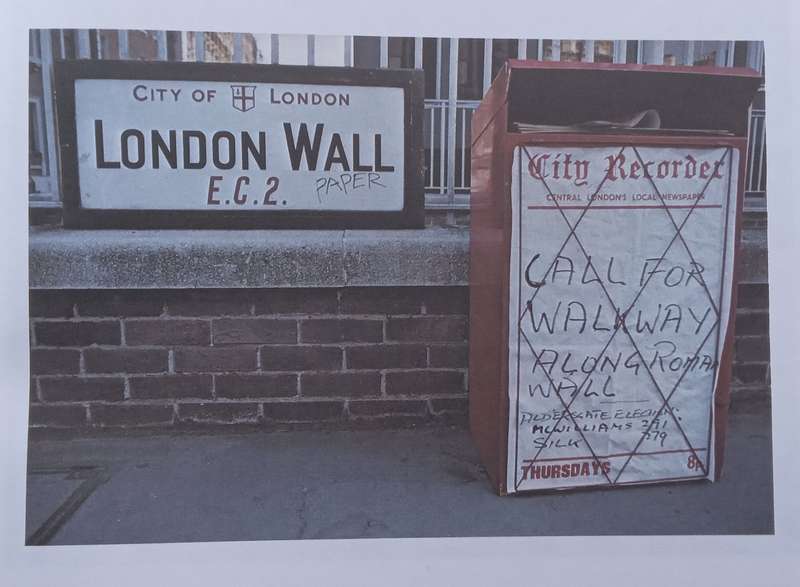 CITY OF LONDON
LONDON WALL
E.C.2. PAPER
City Recorder
CENTRAL LONDON'S LOCAL NEWSPAPER
CALL FOR
WALKWAY
ALONG ROMAN
WALL
ALDERSGATE ELECTION:
MCWILLIAMS
SILK 279
THURSDAYS 8p